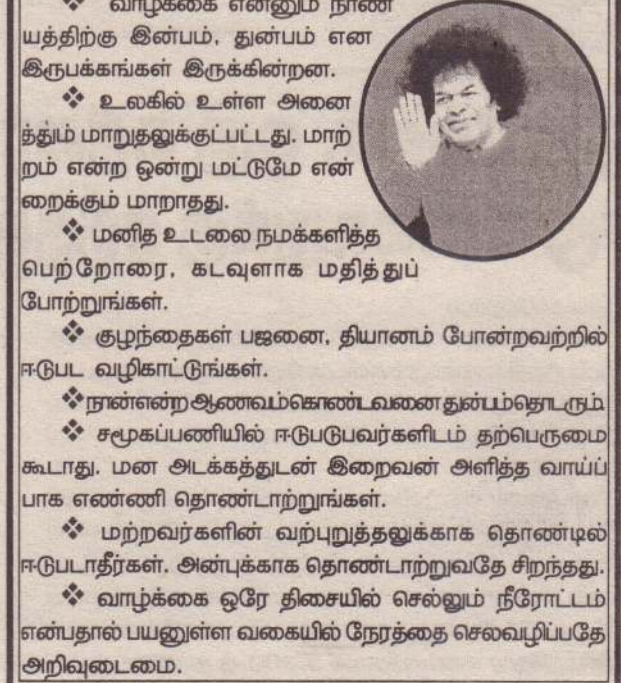 ❖ வாழ்க்கை என்னும் நாண
யத்திற்கு இன்பம், துன்பம் என
இருபக்கங்கள் இருக்கின்றன.
❖ உலகில் உள்ள அனை
த்தும் மாறுதலுக்குட்பட்டது. மாற்
றம் என்ற ஒன்று மட்டுமே என்
றைக்கும் மாறாதது.
❖ மனித உடலை நமக்களித்த
பெற்றோரை, கடவுளாக மதித்துப்
போற்றுங்கள்.
❖ குழந்தைகள் பஜனை, தியானம் போன்றவற்றில்
ஈடுபட வழிகாட்டுங்கள்.
❖ நான் என்ற ஆணவம் கொண்டவனை துன்பம் தொடரும்.
❖ சமூகப்பணியில் ஈடுபடுபவர்களிடம் தற்பெருமை
கூடாது. மன அடக்கத்துடன் இறைவன் அளித்த வாய்ப்
பாக எண்ணி தொண்டாற்றுங்கள்.
❖ மற்றவர்களின் வற்புறுத்தலுக்காக தொண்டில்
ஈடுபடாதீர்கள். அன்புக்காக தொண்டாற்றுவதே சிறந்தது.
❖ வாழ்க்கை ஒரே திசையில் செல்லும் நீரோட்டம்
என்பதால் பயனுள்ள வகையில் நேரத்தை செலவழிப்பதே
அறிவுடைமை.